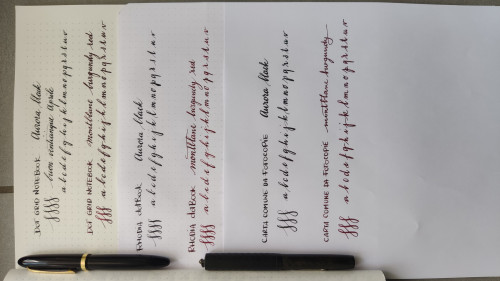 DOT GRID NOTEBOOK Aurora black
buon venticinque Aprile
ffff a b c d e f g h i j k l m n o p q r s t u v
DOT GRID NOTEBOOK montblanc burgundy red
fff a b c d e f g h i j k l m n o p q r s t u v
RHODIA DOTBOOK Aurora black
ffff a b c d e f g h i j k l m n o p q r s t u v
RHODIA DOTBOOK montblanc burgundy red
ffff a b c d e f g h i j k l m n o p q r s t u v
CARTA COMUNE DA FOTOCOPIE Aurora black
fff a b c d e f g h i j k l m n o p q r s t u v
CARTA COMUNE DA FOTOCOPIE montblanc burgundy
fff a b c d e f g h i j k l m n o p q r s t u v